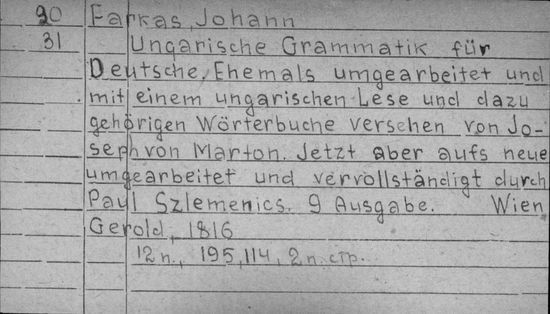 20 Farkas, Johann
31 Ungarische Grammatik für
Deutsche, Ehemals umgearbeitet und
mit einem ungarischen Lese und dazu
gehörigen Wörterbuche versehen von Jo-
seph von Marton. Jetzt aber aufs neue
umgearbeitet und vervollständigt durch
Paul Szlemenics. 9 Ausgabe. Wien
Gerold, 1816
12 п., 195, 114, 2 п. стр.